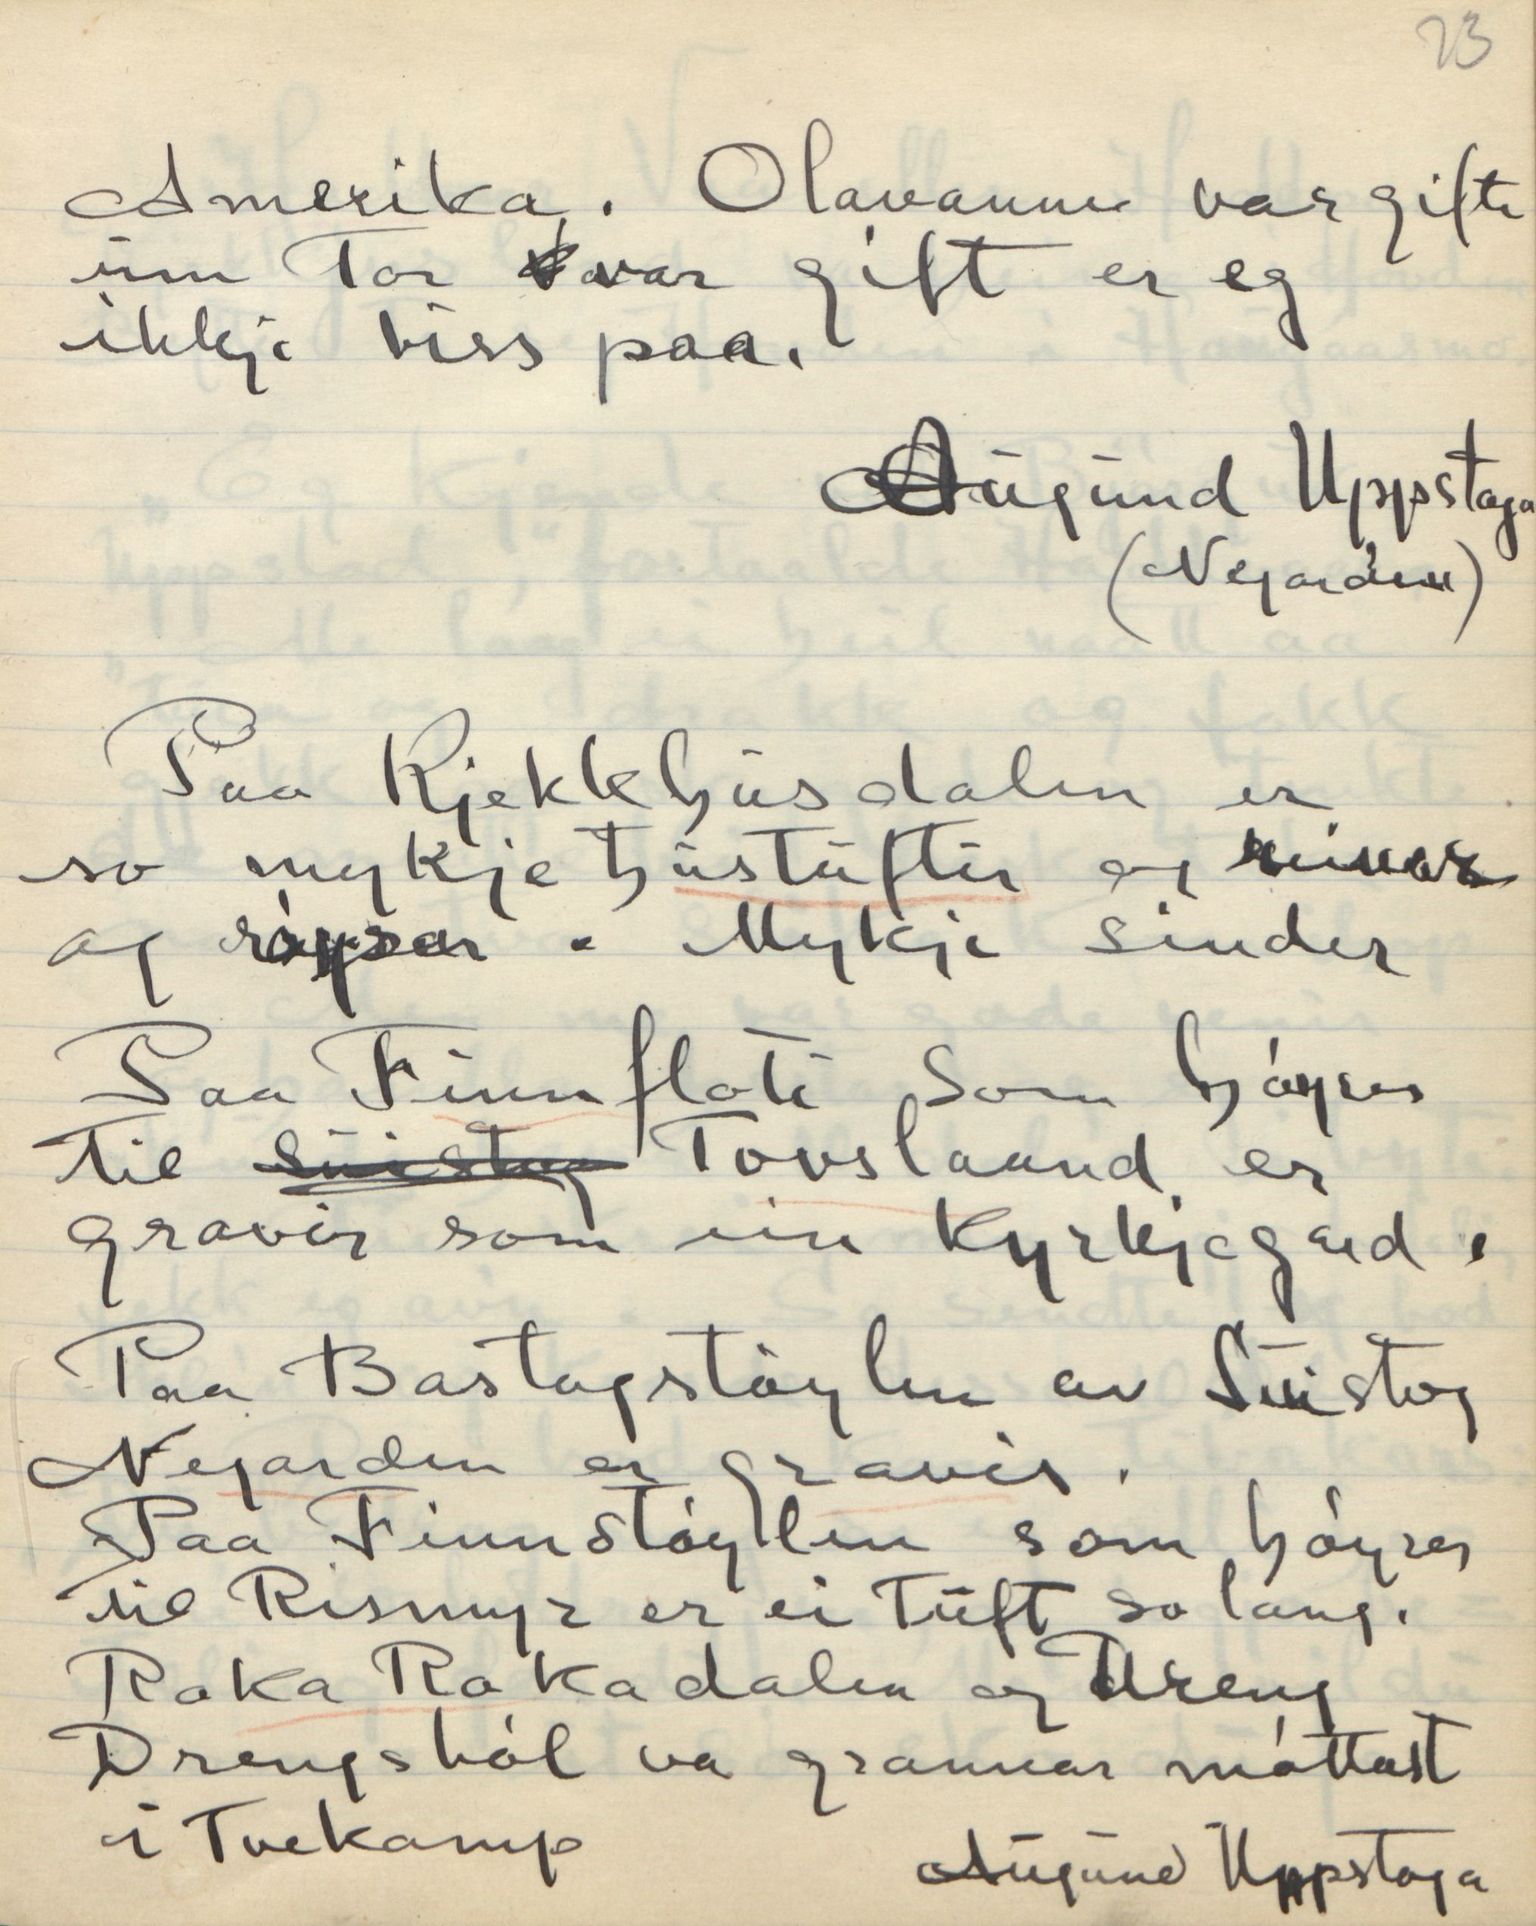 23
Amerika. Olavanne var gifte
um Tor var gift er eg
ikkje viss paa.
Augund Uppstaga
(Negarden)
Paa Kjekkhusdalen er
so mykje hustuftir og
og røysar. Mykje sinder
Paa Finnfloti som høyrer
til Suistog Tovslaand er
gravir som ein Kyrkjegard.
Paa Bastogstøylen av Suistog
Negarden er gravir.
Paa Finnstøylen som høyrer
til Rismyr er ei Tuft so lang.
Roka Rokadalen og Dreng
Drengshól va grannar møttast
i Tvekamp
Augund Uppstoga